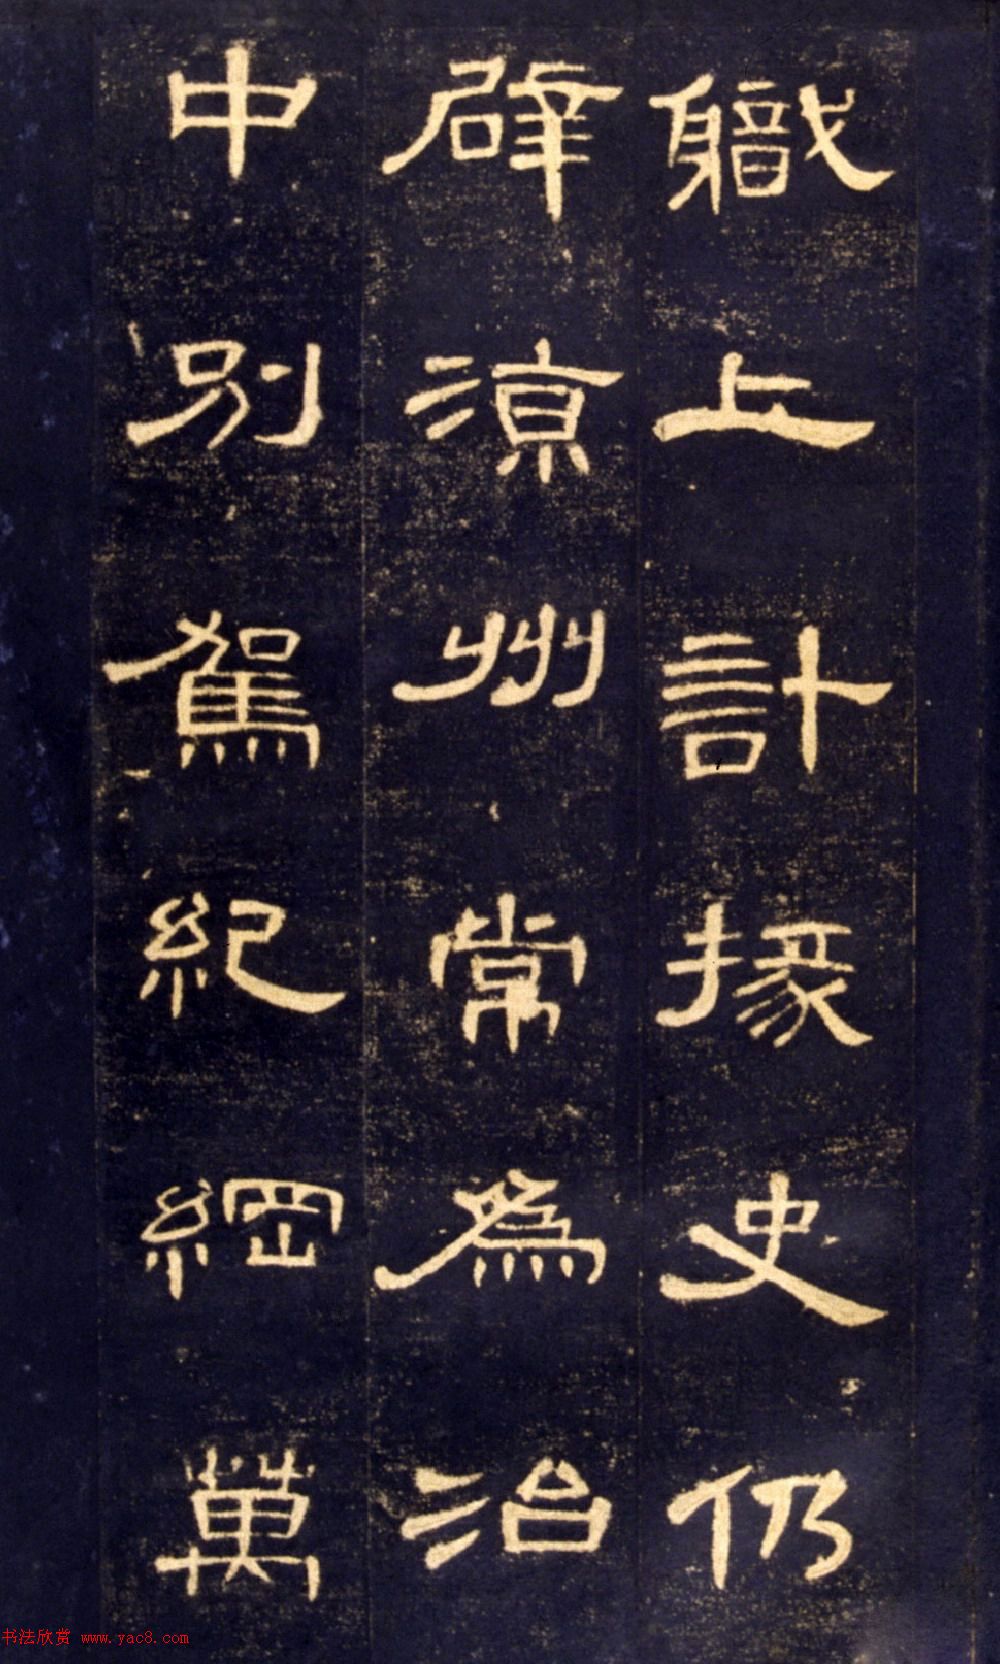 職上計掾史仍
辟涼州常為治
中別駕紀綱萬
书法欣赏 www.yac8.com